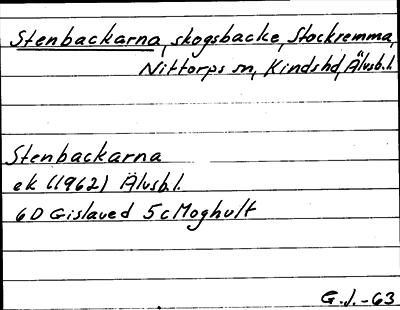 Stenbackarna, skogsbacke, Stockremma,
Nittorps sn, Kindshd, Älvsb.l.
Stenbackarna
ek (1962) Älvsb.l.
6D Gislaved 5c Moghult
G.J.-63